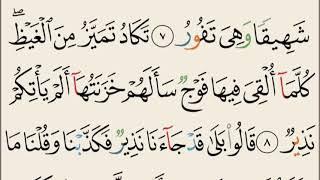 شَهِيقًا وَهِىَ تَفُورُ ٧ تَكَادُ تَمَيَّزُ مِنَ ٱلْغَيْظِ ۖ
كُلَّمَآ أُلْقِىَ فِيهَا فَوْجٌ سَأَلَهُمْ خَزَنَتُهَآ أَلَمْ يَأْتِكُمْ
نَذِيرٌ ٨ قَالُوا۟ بَلَىٰ قَدْ جَآءَنَا نَذِيرٌ فَكَذَّبْنَا وَقُلْنَا مَا